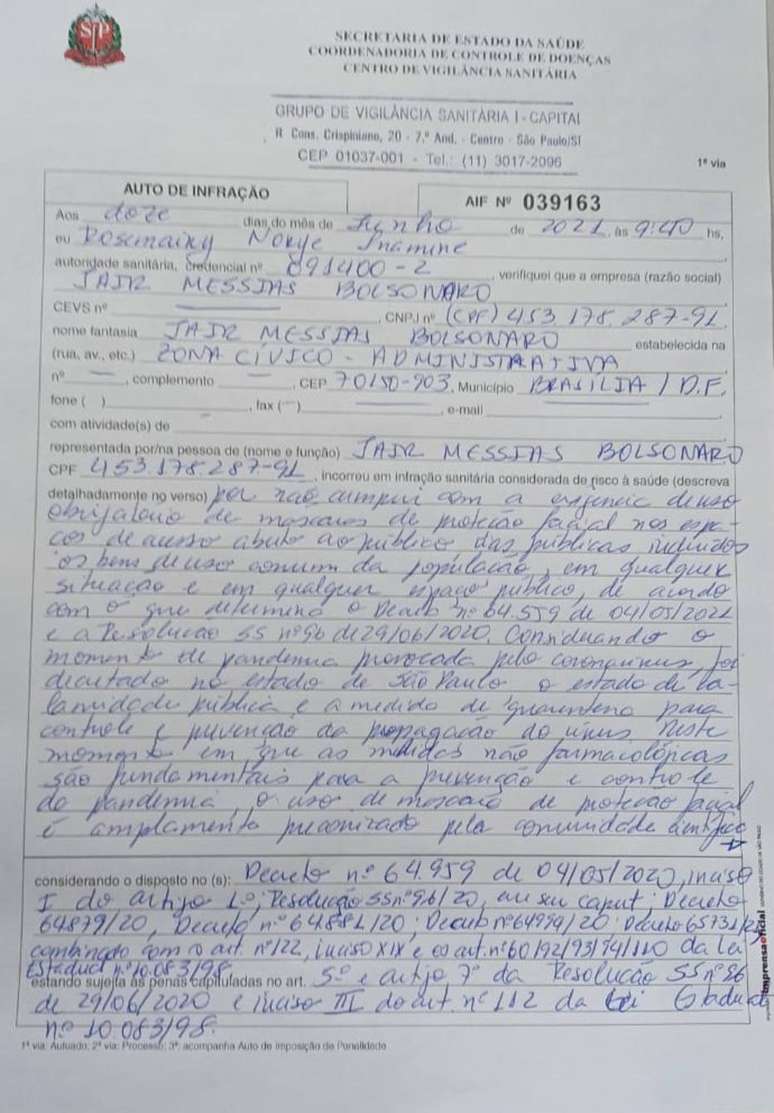 SP
SECRETARIA DE ESTADO DA SAÚDE
COORDENADORIA DE CONTROLE DE DOENÇAS
CENTRO DE VIGILÂNCIA SANITÁRIA
GRUPO DE VIGILÂNCIA SANITÁRIA I - CAPITAL
R. Cons. Crispiniano, 20 - 7.º And. - Centro - São Paulo/SP
CEP 01037-001 - Tel.: (11) 3017-2096
1ª via
AUTO DE INFRAÇÃO
AIF Nº 039163
Aos doze dias do mês de Junho de 2021 às 9:40 hs,
eu Rosemairy Inamine
autoridade sanitária, credencial nº 091400-2, verifiquei que a empresa (razão social)
JAIR MESSIAS BOLSONARO
CEVS nº , CNPJ nº (CPF) 453.178.287-91
nome fantasia JAIR MESSIAS BOLSONARO estabelecida na
(rua, av., etc.) ZONA CÍVICO - ADMINISTRATIVA
nº , complemento , CEP 70150-903, Município BRASÍLIA / D.F.
fone ( ) , fax ( ) , e-mail
com atividade(s) de
representada por/na pessoa de (nome e função) JAIR MESSIAS BOLSONARO
CPF 453.178.287-91, incorreu em infração sanitária considerada de risco à saúde (descreva
detalhadamente no verso) por não cumprir com a exigencia de uso
obrigatorio de mascaras de proteção facial nos espa-
ços de acesso aberto ao público das públicas incluidos
os bens de uso comum da população, em qualquer
situação e em qualquer espaço público, de acordo
com o que determina o Decreto nº 64.959 de 04/05/2021
e a Resolução SS nº 96 de 29/06/2020. Considerando o
momento de pandemia provocada pelo coronavirus, foi
decretado no estado de São Paulo o estado de ca-
lamidade pública e a medida de quarentena para
controle e prevenção da propagação do vírus. Neste
momento em que as medidas não farmacológicas
são fundamentais para a prevenção e controle
da pandemia, o uso de mascara de proteção facial
é amplamente preconizado pela comunidade científica
considerando o disposto no (s): Decreto nº 64.959 de 04/05/2020, inciso
I do artigo 1º; Resolução SS nº 96/20, em seu caput; Decreto
64879/20, Decreto nº 64.881/20 Decreto nº 64994/20 Decreto 65731/21
combinado com o art. nº 122, inciso XIX e os art. nº 60/92/93/94/110 da Lei
Estadual nº 10.083/98.
estando sujeita às penas capituladas no art. 5º e artigo 7º da Resolução SS nº 96
de 29/06/2020 e inciso III do art. nº 112 da Lei Estadual
nº 10.083/98.
1ª via: Autuado; 2ª via: Processo; 3ª: acompanha Auto de Imposição de Penalidade
imprensaoficial